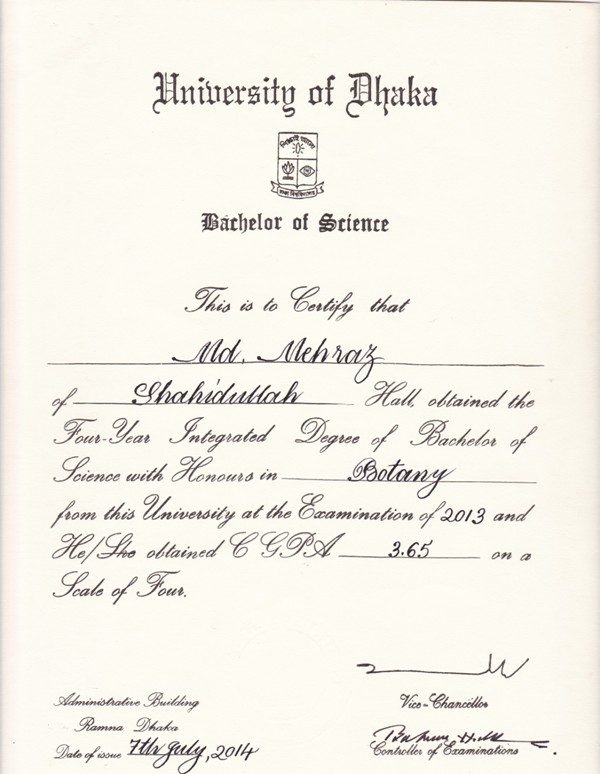 University of Dhaka
শিক্ষাই আলো
ঢাকা বিশ্ববিদ্যালয়
Bachelor of Science
This is to Certify that
Md. Mehraz
of Shahidullah Hall, obtained the
Four-Year Integrated Degree of Bachelor of
Science with Honours in Botany
from this University at the Examination of 2013 and
He/She obtained C G.P.A 3.65 on a
Scale of Four.
Administrative Building
Vice-Chancellor
Ramna Dhaka
Date of issue 7th July, 2014
Controller of Examinations